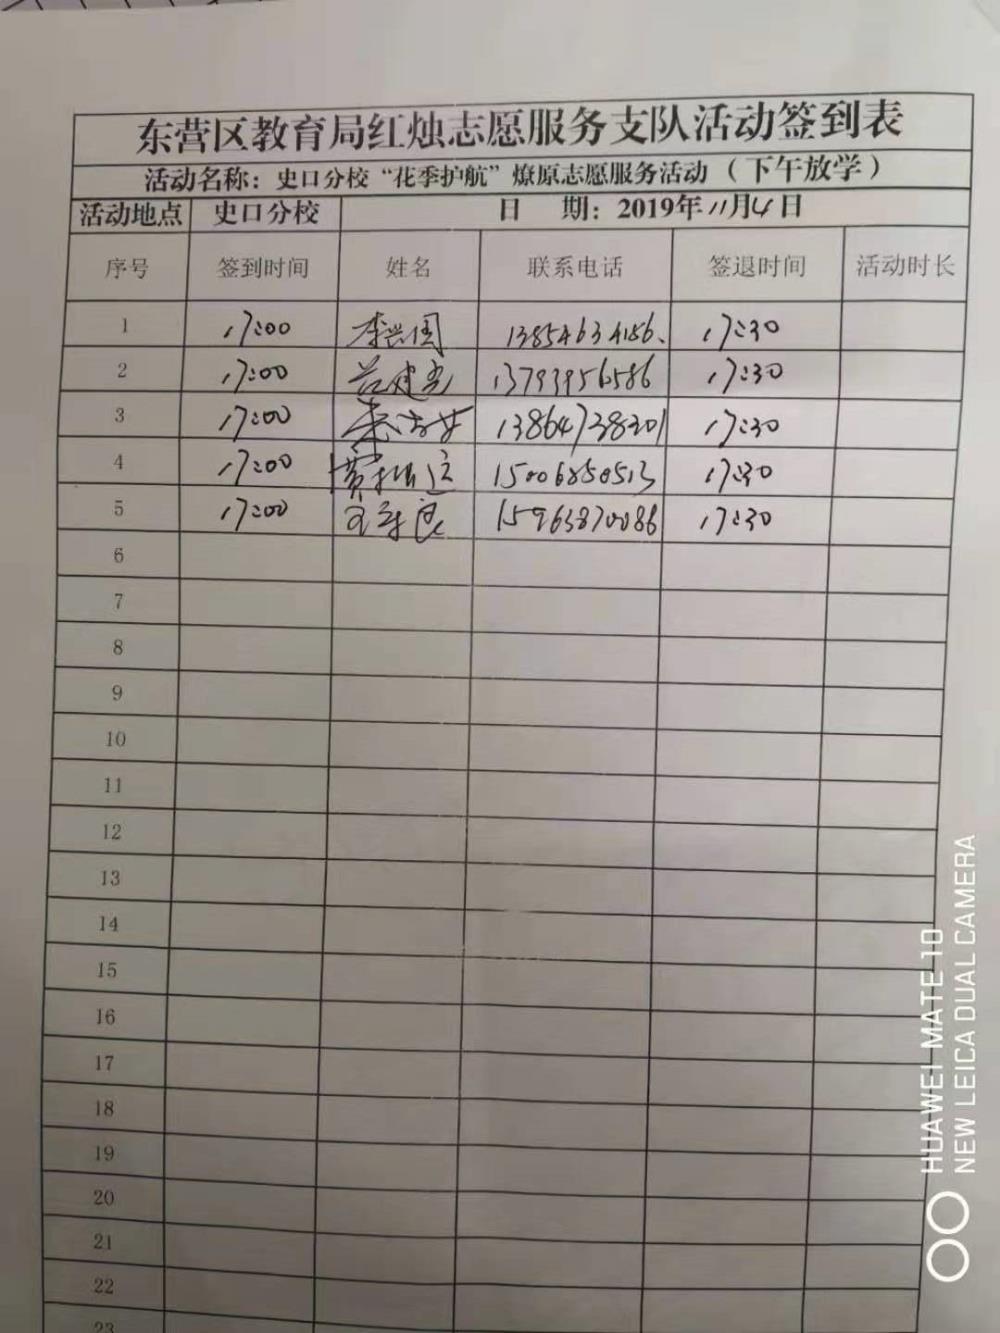 东营区教育局红烛志愿服务支队活动签到表
活动名称：史口分校“花季护航”燎原志愿服务活动（下午放学）
活动地点 史口分校 日 期：2019年11月4日
序号 签到时间 姓名 联系电话 签退时间 活动时长
1 17:00 李兴国 13854634186. 17:30
2 17:00 建 13793956586 17:30
3 17:00 13864738301 17:30
4 17:00 15006850513 17:30
5 17:00 王 良 15963870086 17:30
6
7
8
9
10
11
12
13
14
15
16
17
18
19
20
21
22
23
HUAWEI MATE 10
NEW LEICA DUAL CAMERA